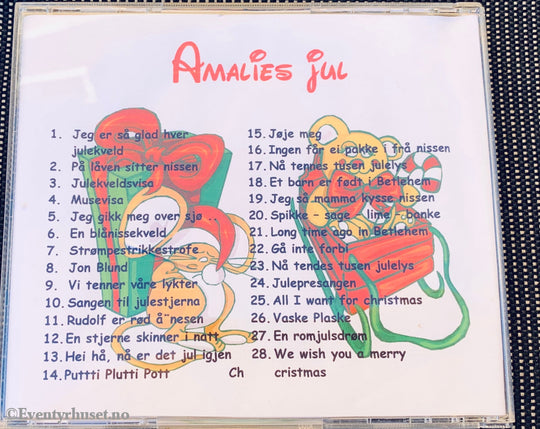 Amalies jul
1. Jeg er så glad hver
julekveld
2. På låven sitter nissen
3. Julekveldsvisa
4. Musevisa
5. Jeg gikk meg over sjø ..
6. En blånissekveld
7. Strømpestrikkestrofe
8. Jon Blund
9. Vi tenner våre lykter
10. Sangen til julestjerna
11. Rudolf er rød å¨nesen
12. En stjerne skinner i natt
13. Hei hå, nå er det jul igjen
14. Puttti Plutti Pott Ch
15. Jøje meg
16. Ingen får ei pakke i frå nissen
17. Nå tennes tusen julelys
18. Et barn er født i Betlehem
19. Jeg så mamma kysse nissen
20. Spikke - sage - lime - banke
21. Long time ago in Betlehem
22. Gå inte forbi
23. Nå tendes tusen julelys
24. Julepresangen
25. All I want for christmas
26. Vaske Plaske
27. En romjulsdrøm
28. We wish you a merry
cristmas
©Eventyrhuset.no